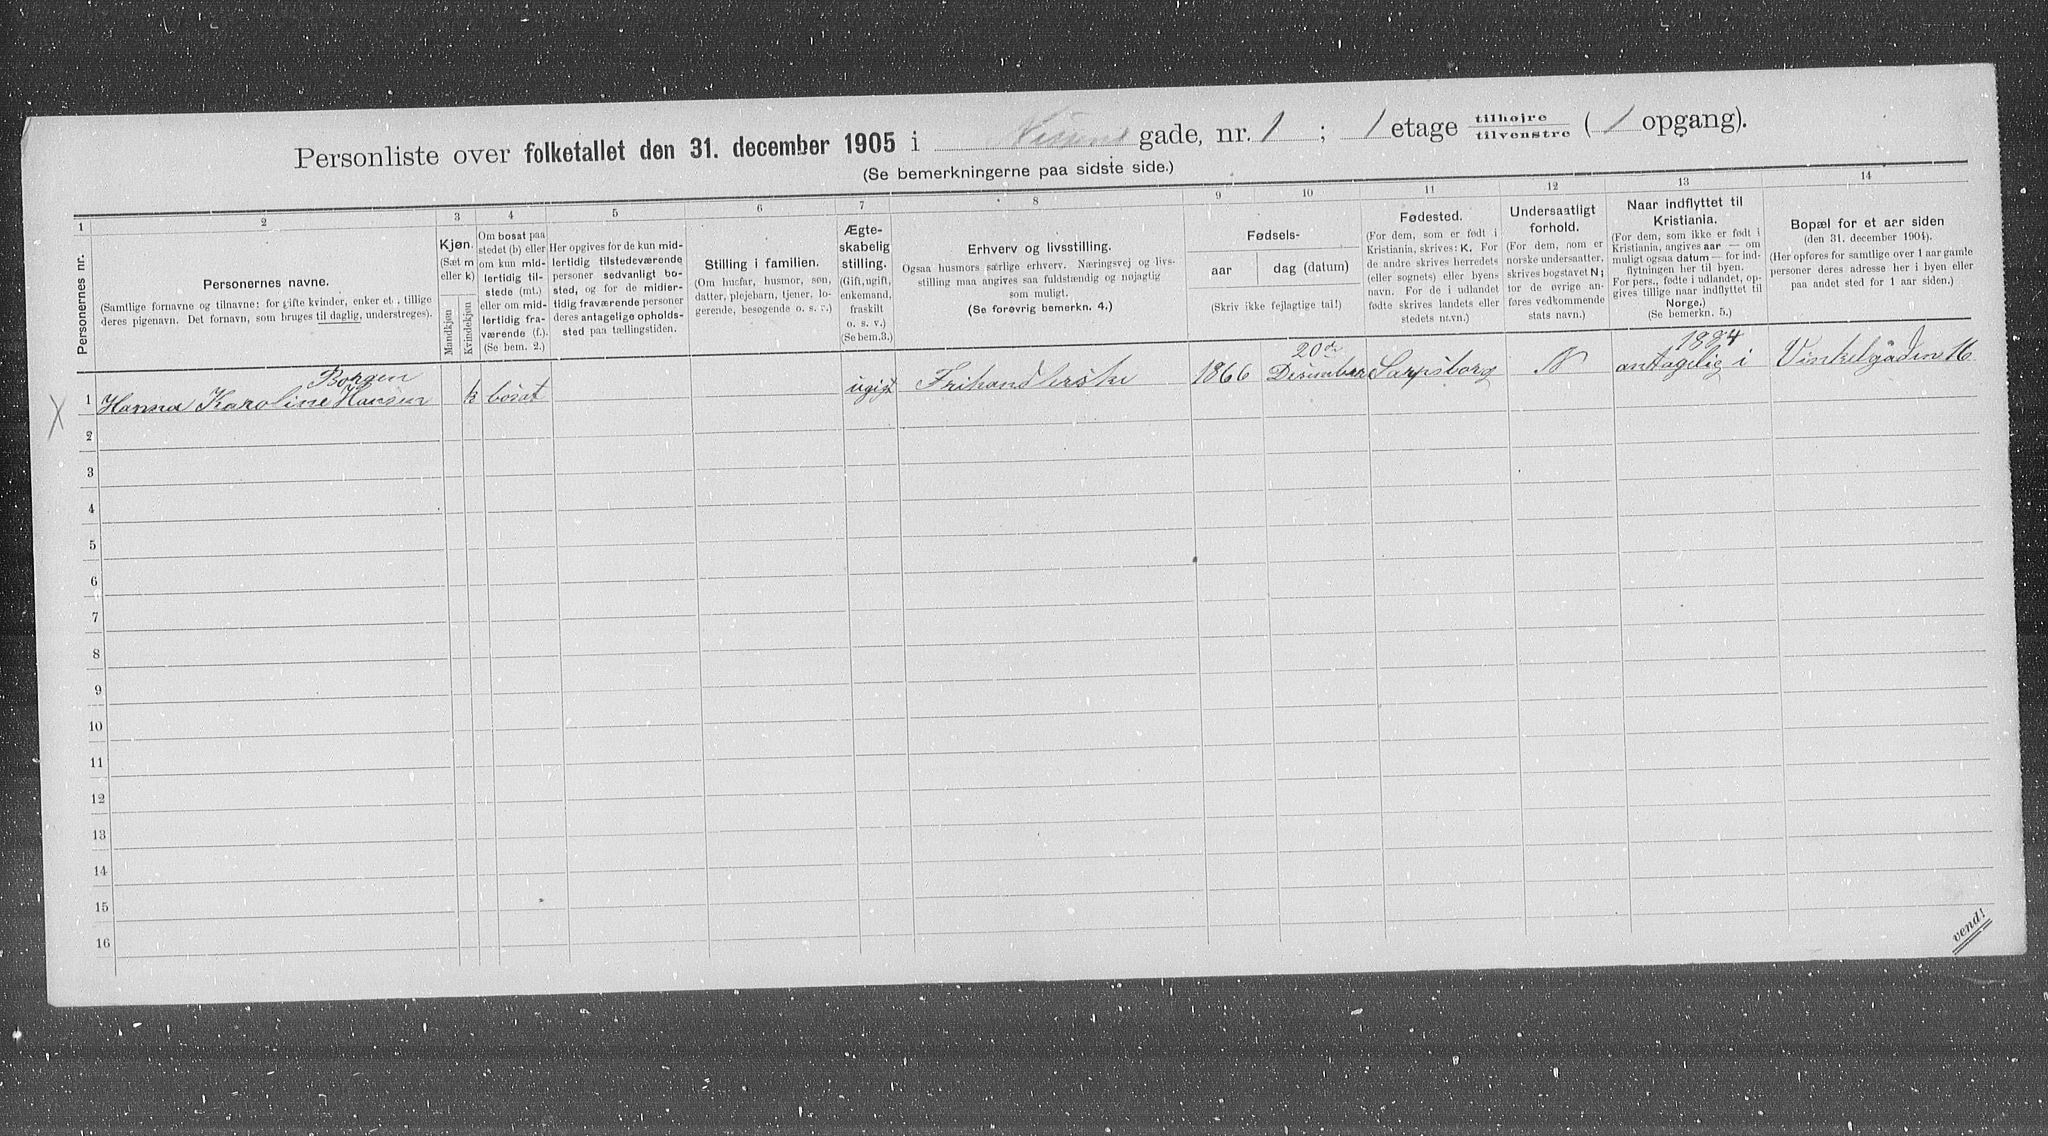 Personliste over folketallet den 31. december 1905 i gade, nr. 1 ; 1 etage tilhøjre tilvenstre ( 1 opgang).
(Se bemerkningerne paa sidste side.)
1 2 3 4 5 6 7 8 9 10 11 12 13 14
Personernes nr.
Personernes navne.
(Samtlige fornavne og tilnavne; for gifte kvinder, enker et., tillige
deres pigenavn. Det fornavn, som bruges til daglig, understreges).
Kjøn.
(Sæt m
eller k)
Mandkjøn
Kvindekjøn
Om bosat paa
stedet (b) eller
om kun mid-
lertidig til-
stede (mt.)
eller om mid-
lertidig fra-
værende (f.).
(Se bem. 2.)
Her opgives for de kun mid-
lertidig tilstedeværende
personer sedvanligt bo-
sted, og for de midler-
tidig fraværende personer
deres antagelige opholds-
sted paa tællingstiden.
Stilling i familien.
(Om husfar, husmor, søn,
datter, plejebarn, tjener, lo-
gerende, besøgende o. s. v.)
Ægte-
skabelig
stilling.
(Gift, ugift,
enkemand,
fraskilt
o. s. v.)
(Se bem.3.)
Erhverv og livsstilling.
Ogsaa husmors særlige erhverv. Næringsvej og livs-
stilling maa angives saa fuldstændig og nøjagtig
som muligt.
(Se forøvrig bemerkn. 4.)
Fødsels-
aar
dag (datum)
(Skriv ikke fejlagtige tal!)
Fødested.
(For dem, som er født i
Kristiania, skrives: K. For
de andre skrives herredets
(eller sognets) eller byens
navn. For de i udlandet
fødte skrives landets eller
stedets navn.)
Undersaatligt
forhold.
(For dem, som er
norske undersaatter,
skrives bogstavet N;
for de øvrige an-
føres vedkommende
stats navn.)
Naar indflyttet til
Kristiania.
(For dem, som ikke er født i
Kristiania, angives aar — om
muligt ogsaa datum — for ind-
flytningen her til byen.
For pers., fødte i udlandet, op-
gives tillige naar indflyttet til
Norge.)
(Se bemerkn. 5.)
Bopæl for et aar siden
(den 31. december 1904).
(Her opføres for samtlige over 1 aar gamle
personer deres adresse her i byen eller
paa andet sted for 1 aar siden.)
Borgen 20de 1884
X 1 Hanna Karoline Hansen k bosat ugift Frihandlerske 1866 Desember Sarpsborg N antagelig i Vinkelgaden 16
2
3
4
5
6
7
8
9
10
11
12
13
14
15
16
vend!